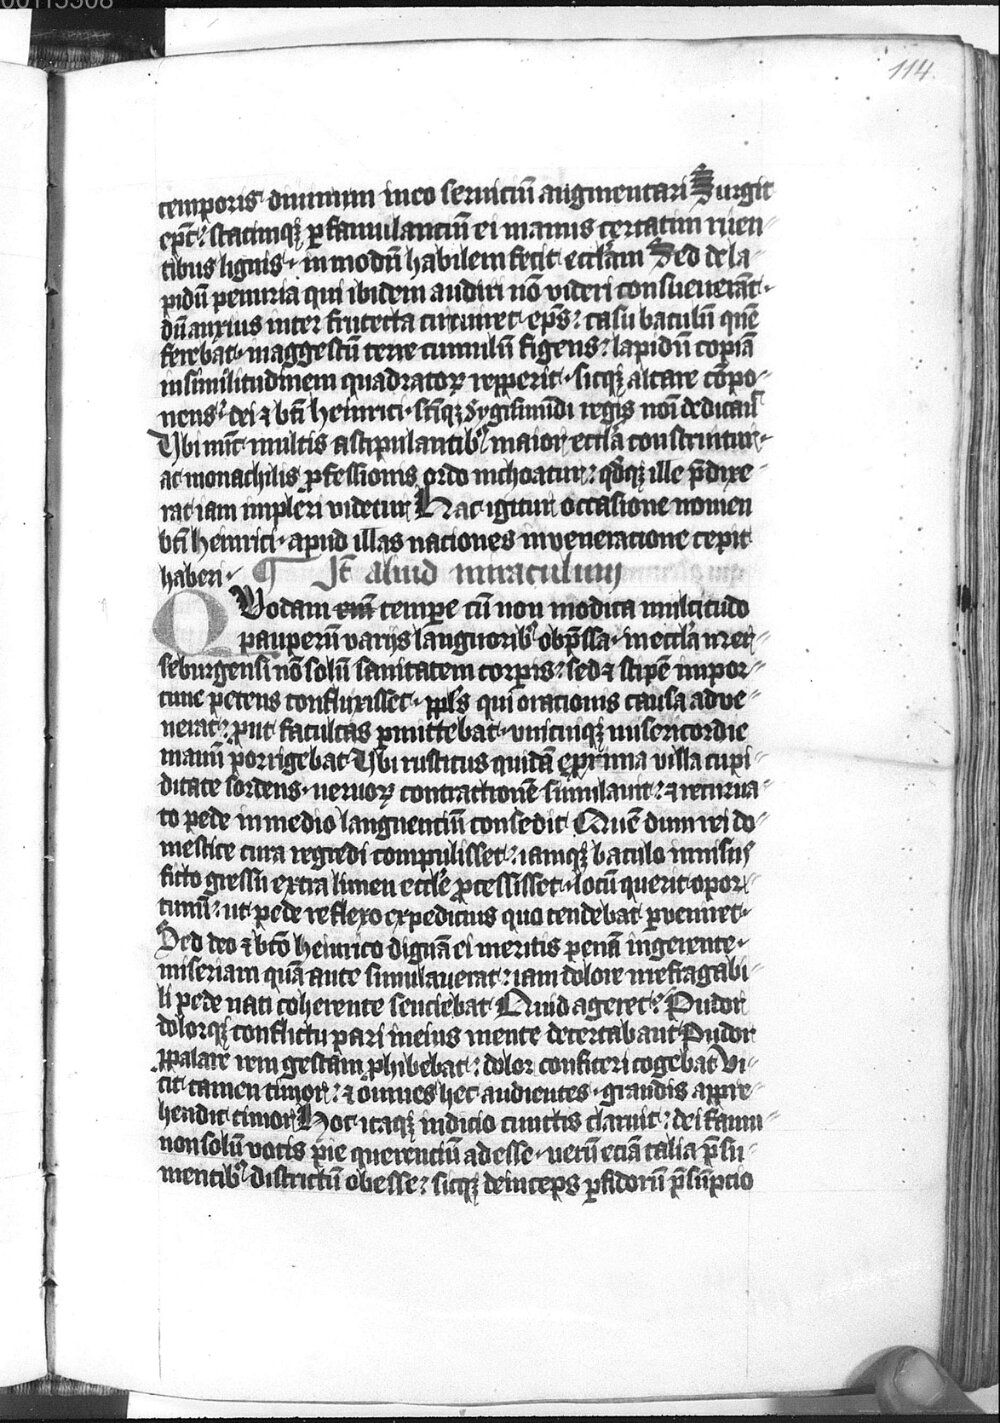 00115308
114
temporis diuinum in eo seruiciū augmentari Surgit
ep̄c: statimqꝫ ꝑ famulanciū ei manus certatim ruen-
tibus lignis in modū habilem fecit eccl̄am Sed de la-
pidū penuria qui ibidem audiri nō videri consueuerāt
dū anxius inter frutecta circuiret ep̄s: casu baculū quē
ferebat in aggestū terre cumulū figens: lapidū copiā
in similitudinem quadratoꝝ repperit sicqꝫ altare cōpo-
nens: dei ⁊ bt̄i heinrici sc̄iqꝫ Sygismūdi regis noī dedicauit
Vbi nūc multis astipulantibꝰ maior eccl̄a construitur
ac monachilis ꝓfessionis ordo inchoatur: qd̄qꝫ ille p̄dixe-
rat iam impleri videtur Hac igitur occasione nomen
bt̄i heinrici apud illas naciones in veneracione cepit
haberi ¶ It̄ aliud miraculum
QVodam tempe cū non modica multitudo
pauperū varijs languoribꝰ obp̄ssa in eccl̄a mer-
seburgensi nō solū sanitatem corpis: sed ⁊ stipē impor-
tune petens confluxisset ppl̄s qui orationis causa adve-
nerat: put facultas pmittebat vnicuiqꝫ misericordie
manū porrigebat Vbi rusticus quidā ex pxima villa cupi-
ditate sordens neruoꝝ contractionē simulauit: ⁊ recurua-
to pede in medio languentiū consedit Quē dum rei do-
mestice cura regredi compulisset: iamqꝫ baculo innisus
ficto gressu extra limen eccl̄e ꝓcessisset locū querit opor-
tunū: ut pede reflexo expedicius quo tendebat ꝑueniret
Sed deo ⁊ bt̄o heinrico dignā ei meritis penā ingerente
miseriam quā ante simulauerat: iam dolore irrefragabi-
li pede nati coherente senciebat Quid ageret: Pudor
dolorqꝫ conflictu pari in eius mente decertabant Pudor
ꝓpalare rem gestam ꝓhibebat: dolor confiteri cogebat Vi-
cit tamen timor: ⁊ omnes hec audientes grandis appre-
hendit timor Hoc itaqꝫ indicio cunctis claruit: dei famu-
non solū votis pie querenciū adesse verū eciā talia p̄su-
mentibꝰ districtū obesse: sicqꝫ deinceps ꝑfidorū p̄sūpcio